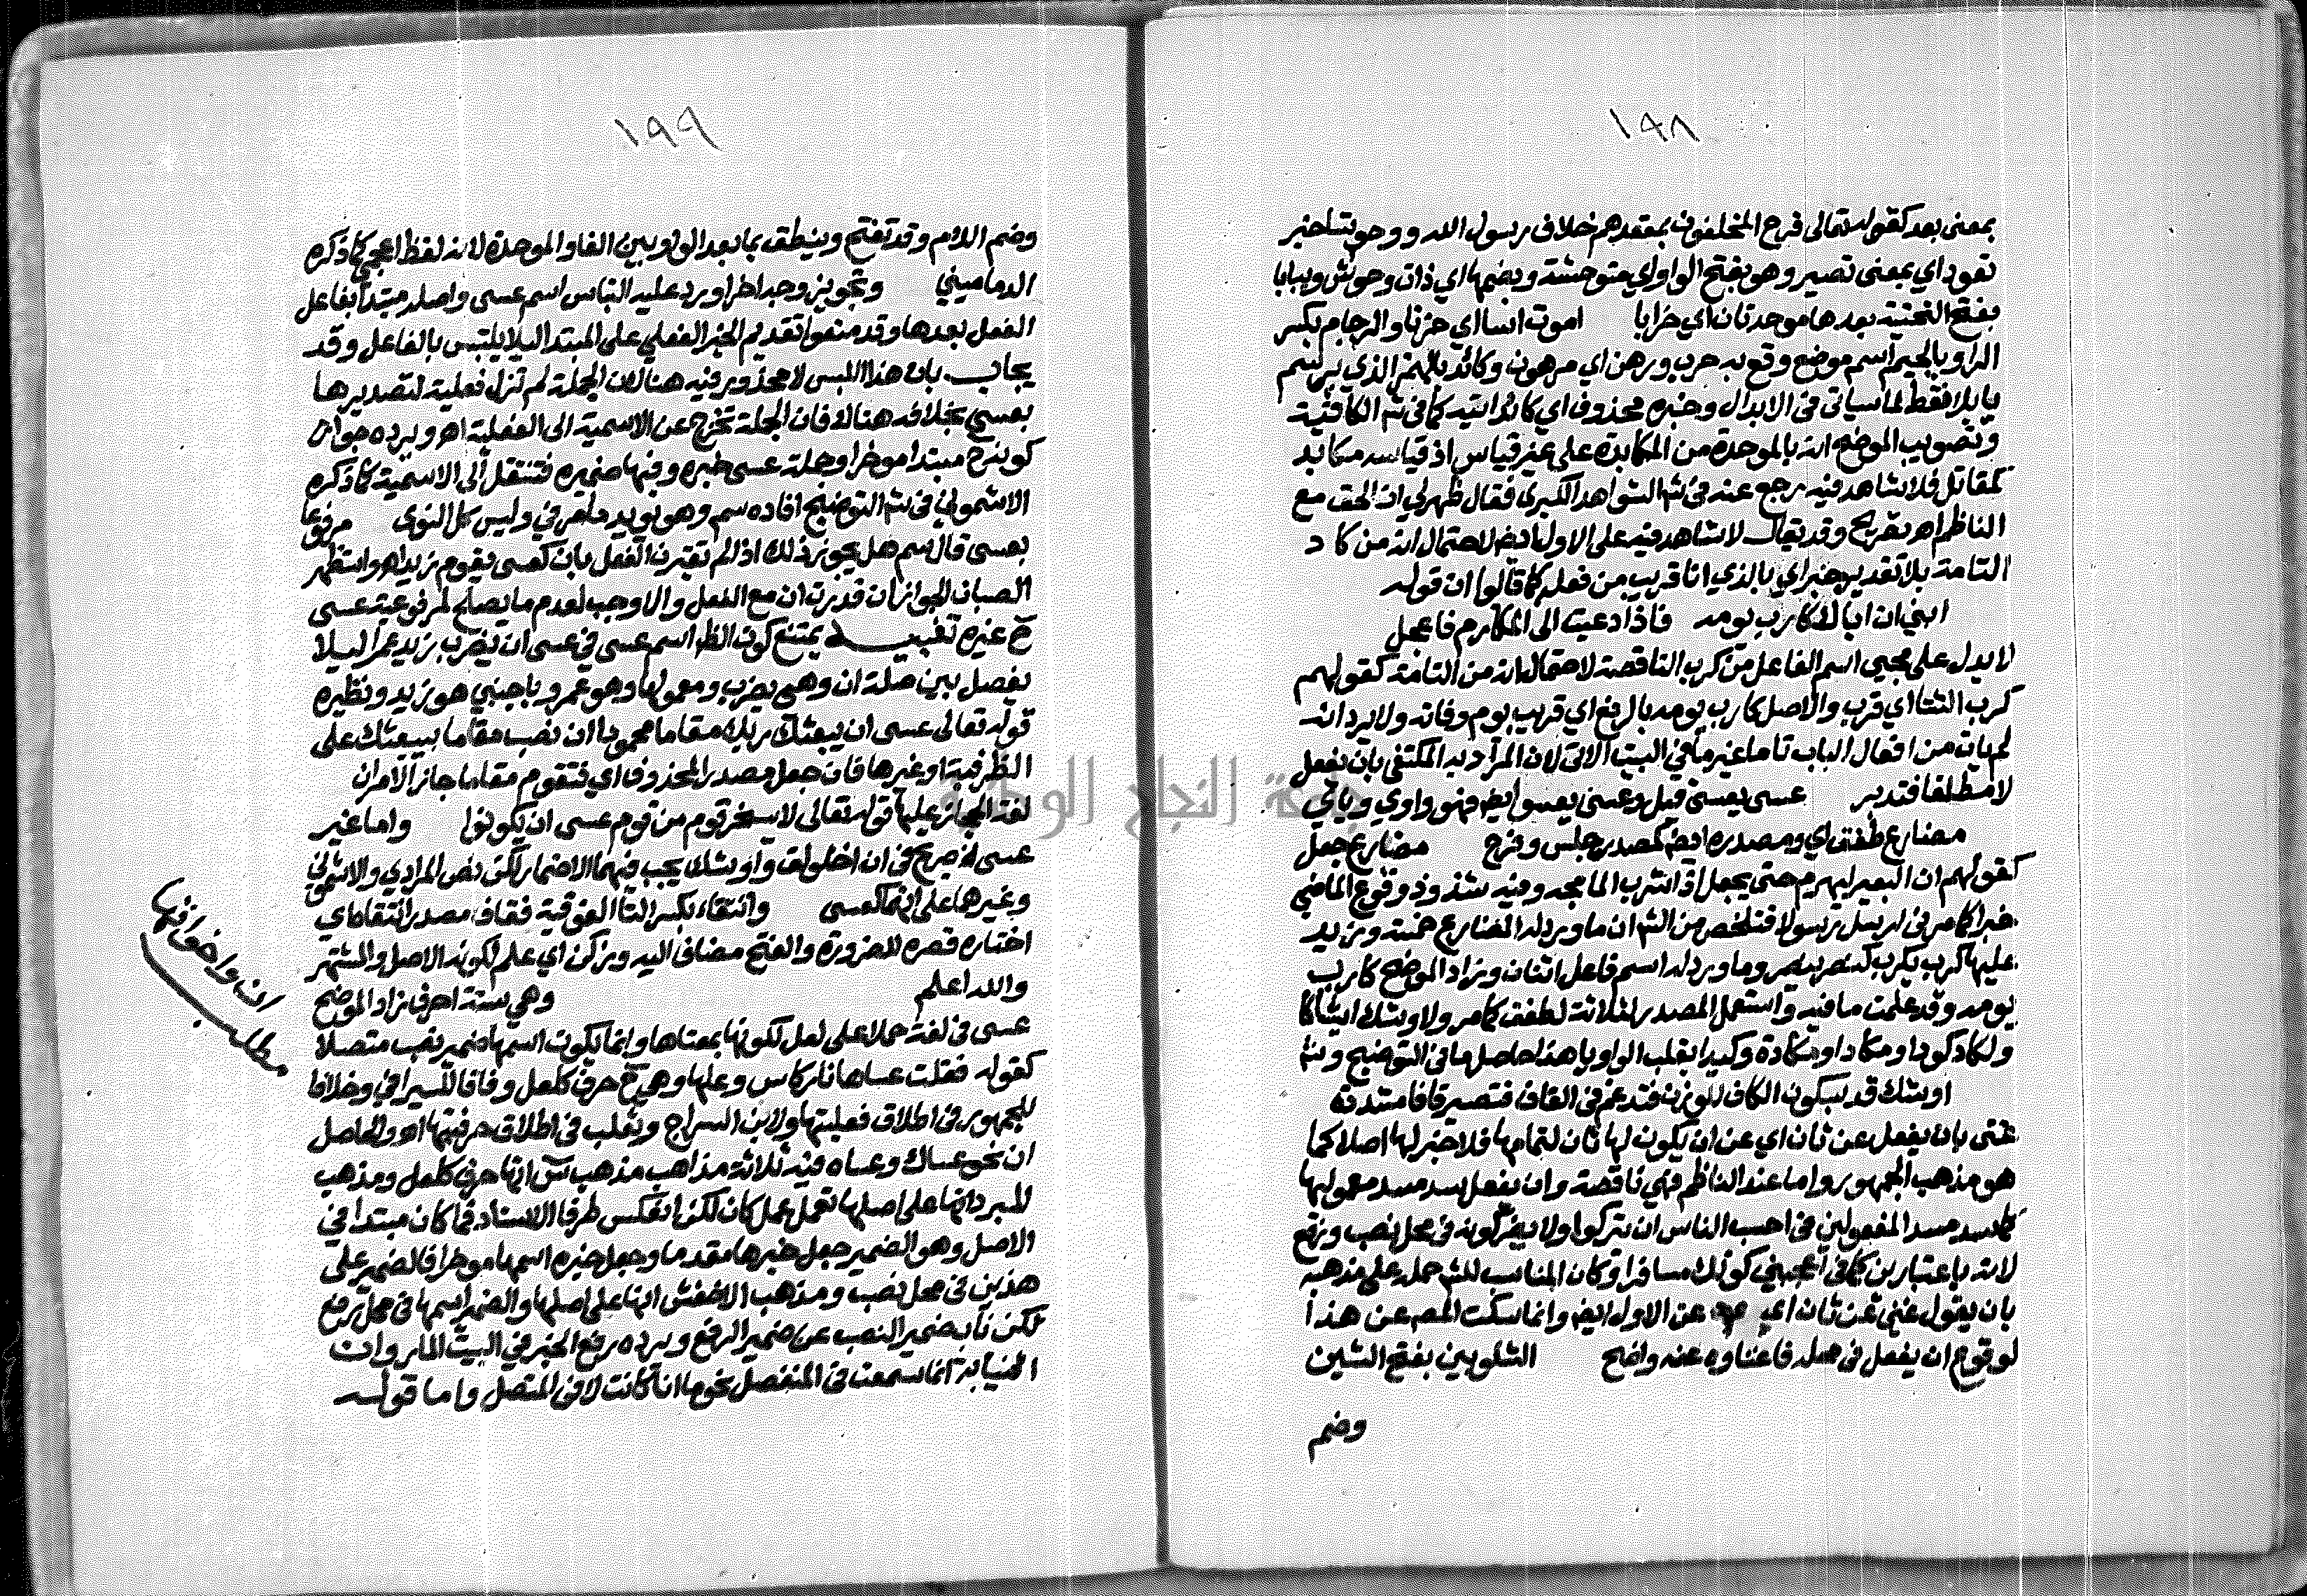 ١٩٨
بمعنى بعد كقوله تعالى فرح المخلفون بمقعدهم خلاف رسول الله ووحوشا خبر
تعود اي بمعنى تصير وهو بفتح الواو اي متوحشة وبضمها اي ذات وحوش ويبابا
بفتح التحتية بعدها موحدتان اي خرابا اموت اسا اي حزنا والرجام بكسر
الراء وبالجيم اسم موضع وقع به حرب ورهن اي مرهون وكائد بالهمز الذي يرسم
يا بلا نقط لما سياتي في الابدال وخبره محذوف اي كائد اتيه كما في شم الكافية
وتصويب الموضح انه بالموحدة من المكابدة على غير قياس اذ قياسه مكابد
كمقاتل فلا شاهد فيه رجع عنه في شم الشواهد الكبرى فقال ظهر لي ان الحق مع
الناظم اهـ تصريح وقد يقال لا شاهد فيه على الاول ايضا لاحتمال انه من كاد
التامة بلا تقدير خبر اي بالذي انا قريب من فعله كما قالوا ان قوله
ابني ان اباك كارب يومه فاذا دعيت الى المكارم فاعجل
لا يدل على مجيى اسم الفاعل من كرب الناقصة لاحتمال انه من التامة كقولهم
كرب الشتا اي قرب والاصل كارب يومه بالرفع اي قريب يوم وفاته ولا يرد انه
لم يات من افعال الباب تاما غير ما في البيت الاتي لان المراد به المكتفي بان يفعل
لا مطلقا فتدبر عسى يعسى قيل وعسى يعسو ايضا فهو واوي ويائي
مضارع طفق اي ومصدره ايضا كمصدر جلس وفرح مضارع جعل
كقولهم ان البعير ليهرم حتى يجعل اذا شرب الما مجه وفيه شذوذ وقوع الماضي
خبرا كما مر في ارسل رسولا فتلخص من الشم ان ما ورد له المضارع خمسة وزيد
عليها كرب يكرب كنصر ينصر وما ورد له اسم فاعل اثنان وزاد الموضح كارب
يومه وقد علمت ما فيه واستعمل المصدر لثلاثة لطفق كما مر ولاوشك ايشاكا
ولكاد كودا ومكادا ومكادة وكيدا بقلب الواو يا هذا حاصل ما في التوضيح وشم
اوشك قد بسكون الكاف للوزن فتدغم في القاف فتصير قافا مشددة
غنى بان يفعل عن ثان اي عن ان يكون لها ثان لتمامها فلا خبر لها اصلا كما
هو مذهب الجمهور واما عند الناظم فهي ناقصة وان يفعل سد مسد معموليها
كما سد مسد المفعولين في احسب الناس ان يتركوا ولا يضر كونه في محل نصب ورفع
لانه باعتبارين كما في اعجبني كونك مسافرا وكان المناسب للشم حمله على مذهبه
بان يقول غنى عن ثان اي عن الاول ايضا وانما سكت المصـ عن هذا
لوقوع ان يفعل في محله فاغناؤه عنه واضح الشلوبين بفتح الشين
وضم
١٩٩
وضم اللام وقد تفتح وينطق بما بعد الواو بين الفا والموحدة لانه لفظ اعجمي كما ذكره
الدماميني وتجويز وجه اخر اورد عليه التباس اسم عسى واصله مبتدا بفاعل
الفعل بعدها وقد منعوا تقديم الخبر الفعلي على المبتدا لئلا يلتبس بالفاعل وقد
يجاب بان هذا اللبس لا محذور فيه هنا لان الجملة لم تزل فعلية لتصديرها
بعسى بخلافه هناك فان الجملة تخرج عن الاسمية الى الفعلية اهـ ويرده جواز
كونزح مبتدا موخرا وجملة عسى خبره وفيها ضميره فتنتقل الى الاسمية كما ذكره
الاشموني في شم التوضيح افاده سم وهو يويد ما مر في وليس كل النوى مرفوعا
بعسى قال سم هل يجوز ذلك اذا لم تقترن الفعل بان كعسى يقوم زيد اهـ واستظهر
الصبان الجواز ان قدرت ان مع الفعل والا وجب لعدم ما يصلح لمرفوعية عسى
ح غيره تنبيه يمتنع كون الظا اسم عسى في عسى ان يضرب زيد عمرا لئلا
يفصل بين صلة ان وهي يضرب ومعمولها وهو عمرو باجنبي هو زيد ونظيره
قوله تعالى عسى ان يبعثك ربك مقاما محمودا ان نصب مقاما بيبعثك على
الظرفية او غيرها فان جعل مصدرا لمحذوف اي فتقوم مقاما جاز الامران
لغة الحجاز عليها قوله تعالى لا يسخر قوم من قوم عسى ان يكونوا واما غير
عسى الخ صريح في ان اخلولق واوشك يجب فيهما الاضمار لكن نص المرادي والاشموني
وغيرها على انهما كعسى وانتقاء بكسر التا الفوقية فقاف مصدر انتقا اي
اختاره قصره للضرورة والفتح مضاف اليه وزكن اي علم لكونه الاصل والمشهر
والله اعلم وهي ستة احرف زاد الموضح
ان واخواتها
مطلب
عسى في لغة حملا على لعل لكونها بمعناها وانما يكون اسمها ضمير نصب متصلا
كقوله فقلت عساها نار كاس وعلها وهي ح حرف كلعل وفاقا للسيرافي وخلافا
للجمهور في اطلاق فعليتها ولابن السراج وثعلب في اطلاق حرفيتها اهـ والحاصل
ان نحو عساك وعساه فيه ثلاثة مذاهب مذهب س انها حرف كلعل ومذهب
المبرد انها على اصلها تعمل عمل كان لكن انعكس طرفا الاسناد فما كان مبتدا في
الاصل وهو الضمير جعل خبرها مقدما وجعل خبره اسمها موخرا فالضمير على
هذين في محل نصب ومذهب الاخفش انها على اصلها والضمير اسمها في محل رفع
لكن ناب ضمير النصب عن ضمير الرفع ويرده رفع الخبر في البيت المار وان
النيابة انما سمعت في المنفصل نحو ما انا كانت لا في المتصل واما قوله